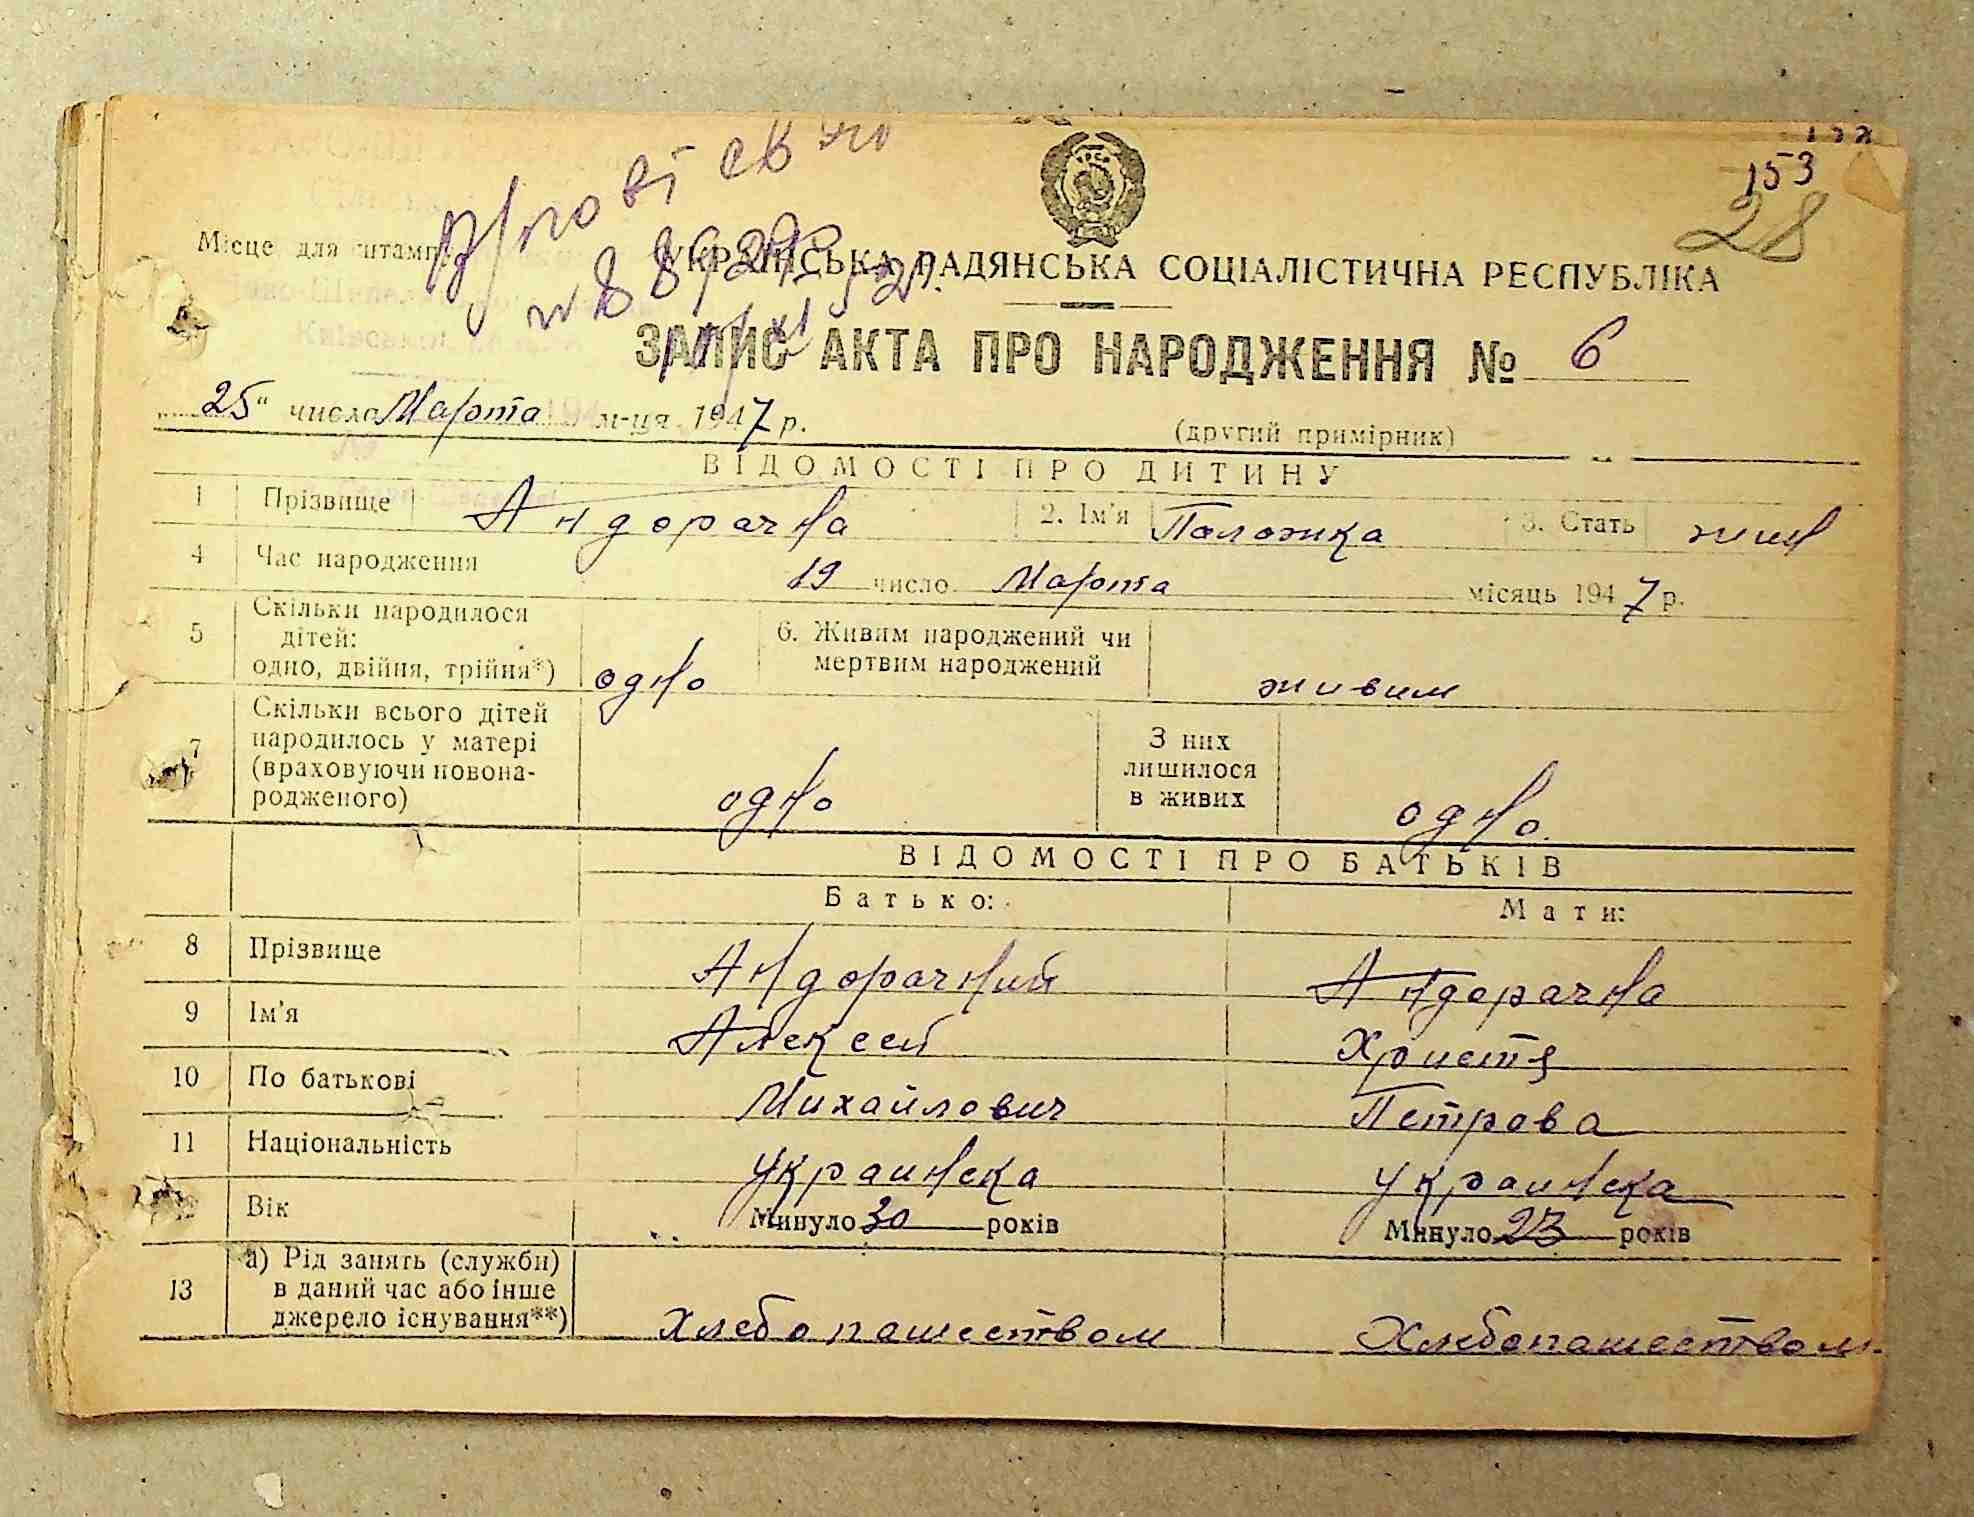 153
28
Місце для штампу
УКРАЇНСЬКА РАДЯНСЬКА СОЦІАЛІСТИЧНА РЕСПУБЛІКА
ЗАПИС АКТА ПРО НАРОДЖЕННЯ № 6
„25" числа Марта м-ця 1947 р.
(другий примірник)
ВІДОМОСТІ ПРО ДИТИНУ
1 Прізвище Андорачна 2. Ім'я Положка 3. Стать жин
4 Час народження 19 число Марта місяць 1947 р.
5 Скільки народилося
дітей:
одно, двійня, трійня*) одно
6. Живим народжений чи
мертвим народжений живим
7 Скільки всього дітей
народилось у матері
(враховуючи новона-
родженого) одно
З них
лишилося
в живих одно.
ВІДОМОСТІ ПРО БАТЬКІВ
Батько: Мати:
8 Прізвище Андорачний Андорачна
9 Ім'я Алексей Христя
10 По батькові Михайлович Петрова
11 Національність украинска украинска
12 Вік Минуло 30 років Минуло 23 років
13 а) Рід занять (служби)
в даний час або інше
джерело існування**) хлебопашеством Хлебопашеством